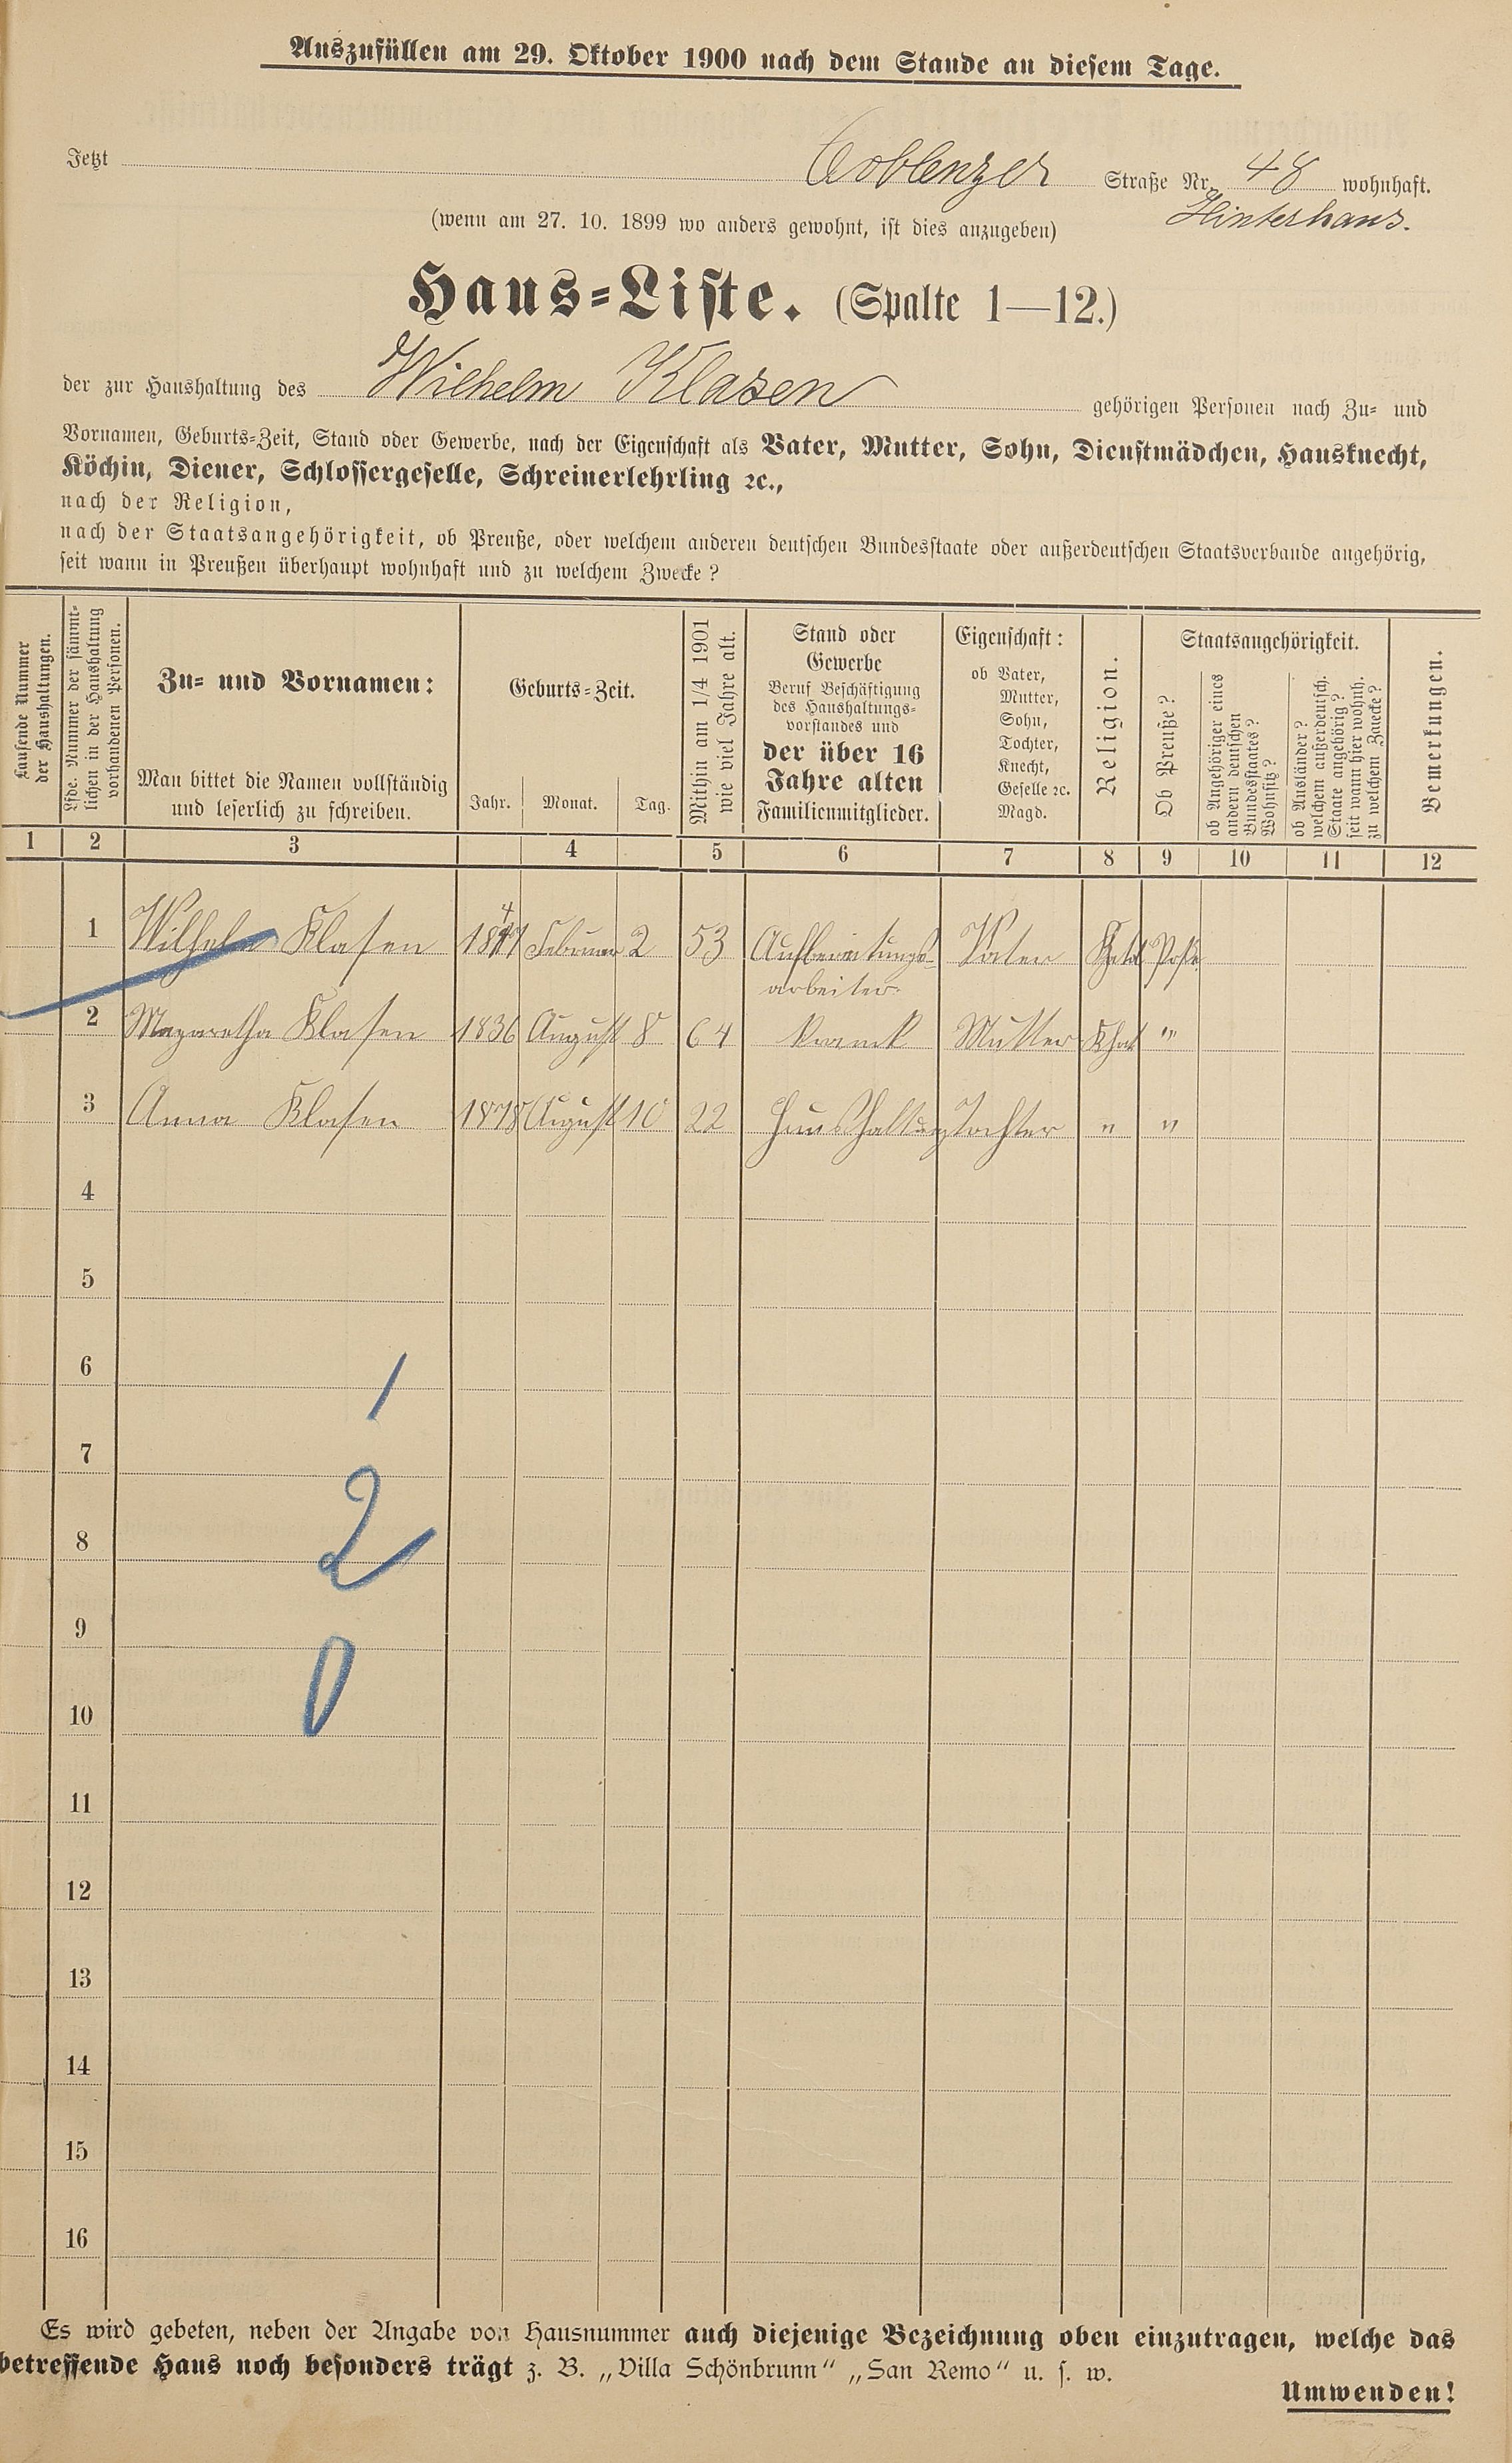 Auszufüllen am 29. Oktober 1900 nach dem Stande an diesem Tage.
Jetzt Coblenzer Straße Nr. 48 wohnhaft.
Hinterhaus.
(wenn am 27. 10. 1899 wo anders gewohnt, ist dies anzugeben)
Haus-Liste. (Spalte 1—12.)
der zur Haushaltung des Wilhelm Klasen gehörigen Personen nach Zu- und
Vornamen, Geburts-Zeit, Stand oder Gewerbe, nach der Eigenschaft als Vater, Mutter, Sohn, Dienstmädchen, Hausknecht,
Köchin, Diener, Schlossergeselle, Schreinerlehrling ꝛc.,
nach der Religion,
nach der Staatsangehörigkeit, ob Preuße, oder welchem anderen deutschen Bundesstaate oder außerdeutschen Staatsverbande angehörig,
seit wann in Preußen überhaupt wohnhaft und zu welchem Zwecke?
Laufende Nummer
der Haushaltungen.
Lfde. Nummer der sämmt-
lichen in der Haushaltung
vorhandenen Personen.
Zu- und Vornamen:
Man bittet die Namen vollständig
und leserlich zu schreiben.
Geburts-Zeit.
Jahr. Monat. Tag.
Mithin am 1/4 1901
wie viel Jahre alt.
Stand oder
Gewerbe
Beruf Beschäftigung
des Haushaltungs-
vorstandes und
der über 16
Jahre alten
Familienmitglieder.
Eigenschaft:
ob Vater,
Mutter,
Sohn,
Tochter,
Knecht,
Geselle ꝛc.
Magd.
Religion.
Staatsangehörigkeit.
Ob Preuße?
ob Angehöriger eines
andern deutschen
Bundesstaates?
Wohnsitz?
ob Ausländer?
welchem außerdeutsch.
Staate angehörig?
seit wann hier wohnh.
zu welchem Zwecke?
Bemerkungen.
1 2 3 4 5 6 7 8 9 10 11 12
1 Wilhelm Klasen 1847 Februar 2 53 Aufbereitungs- Vater
arbeiter.
2 Margaretha Klasen 1836 August 8 64 krank Mutter Khat "
3 Anna Klasen 1878 August 10 22 Haushaltung Tochter " "
4
5
6
1
7
2
8
9
0
10
11
12
13
14
15
16
Es wird gebeten, neben der Angabe von Hausnummer auch diejenige Bezeichnung oben einzutragen, welche das
betreffende Haus noch besonders trägt z. B. „Villa Schönbrunn“ „San Remo“ u. s. w.
Umwenden!